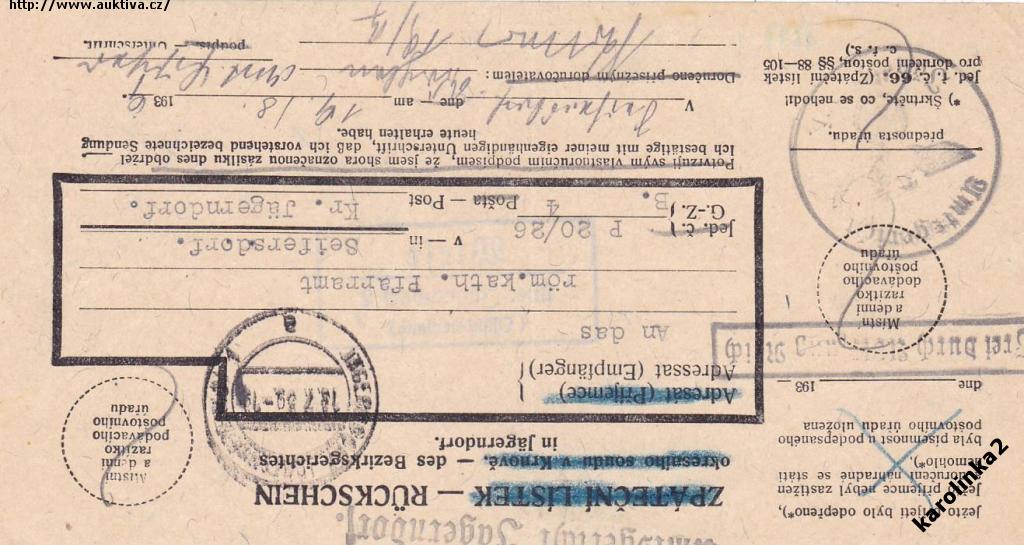 http://www.auktiva.cz/
Amtsgericht Jägerndorf.
ZPÁTEČNÍ LÍSTEK — RÜCKSCHEIN
okresního soudu v Krnově. — des Bezirksgerichtes
in Jägerndorf.
Adresát (Příjemce)
Adressat (Empfänger)
An das
röm.kath. Pfarramt
Seifersdorf.
v — in
Kr. Jägerndorf.
Pošta — Post
Jed. č.
G.-Z.
P 20/26
4
B.
Potvrzuji svým vlastnoručním podpisem, že jsem shora označenou zásilku dnes obdržel
Ich bestätige mit meiner eigenhändigen Unterschrift, daß ich vorstehend bezeichnete Sendung
heute erhalten habe.
V Seifersdorf dne — am 19./8. 193
Doručeno přísežným doručovatelem:
podpis. Unterschrift.
Místní
a denní
razítko
podávacího
poštovního
úřadu
Ježto přijetí bylo odepřeno*),
Ježto příjemce nebyl zastižen
a doručení náhradné se státi
nemohlo*),
byla písemnost podepsaného
poštovního úřadu uložena
dne 193
Frei durch Ablösung Reich
Místní
a denní
razítko
dodávacího
poštovního
úřadu
přednosta úřadu.
*) Škrtněte, co se nehodí.
Jed. f. č. 66 (Zpáteční lístek
pro doručení poštou, §§ 88—105
c. ř. s.)
Amtsgericht
karolinka2